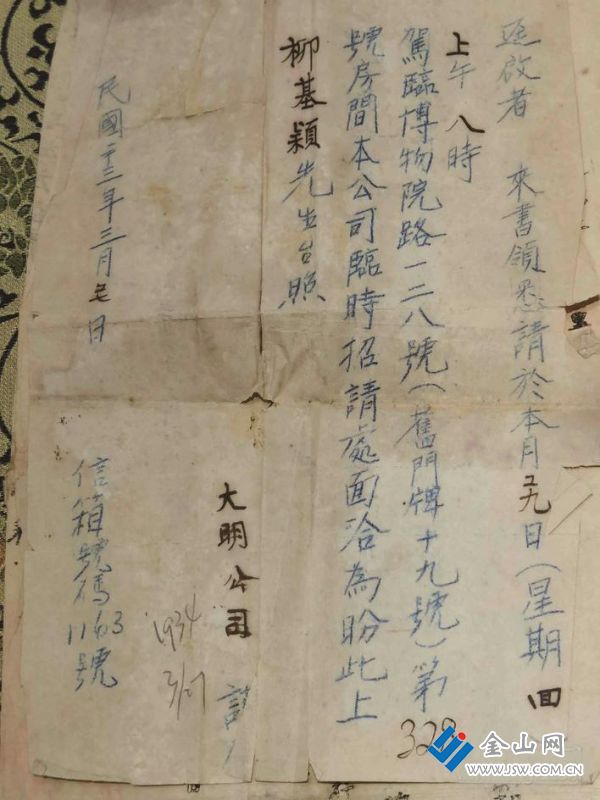 逕啟者　來書領悉請於本月廿九日(星期四
上午八時
駕臨博物院路一二八號(舊門牌十九號)第
328
號房間本公司臨時招請處面洽為盼此上
柳基穎先生台照
大明公司
1934
信箱號碼1163號
民國二十三年三月 日
金山网
WWW.JSW.COM.CN